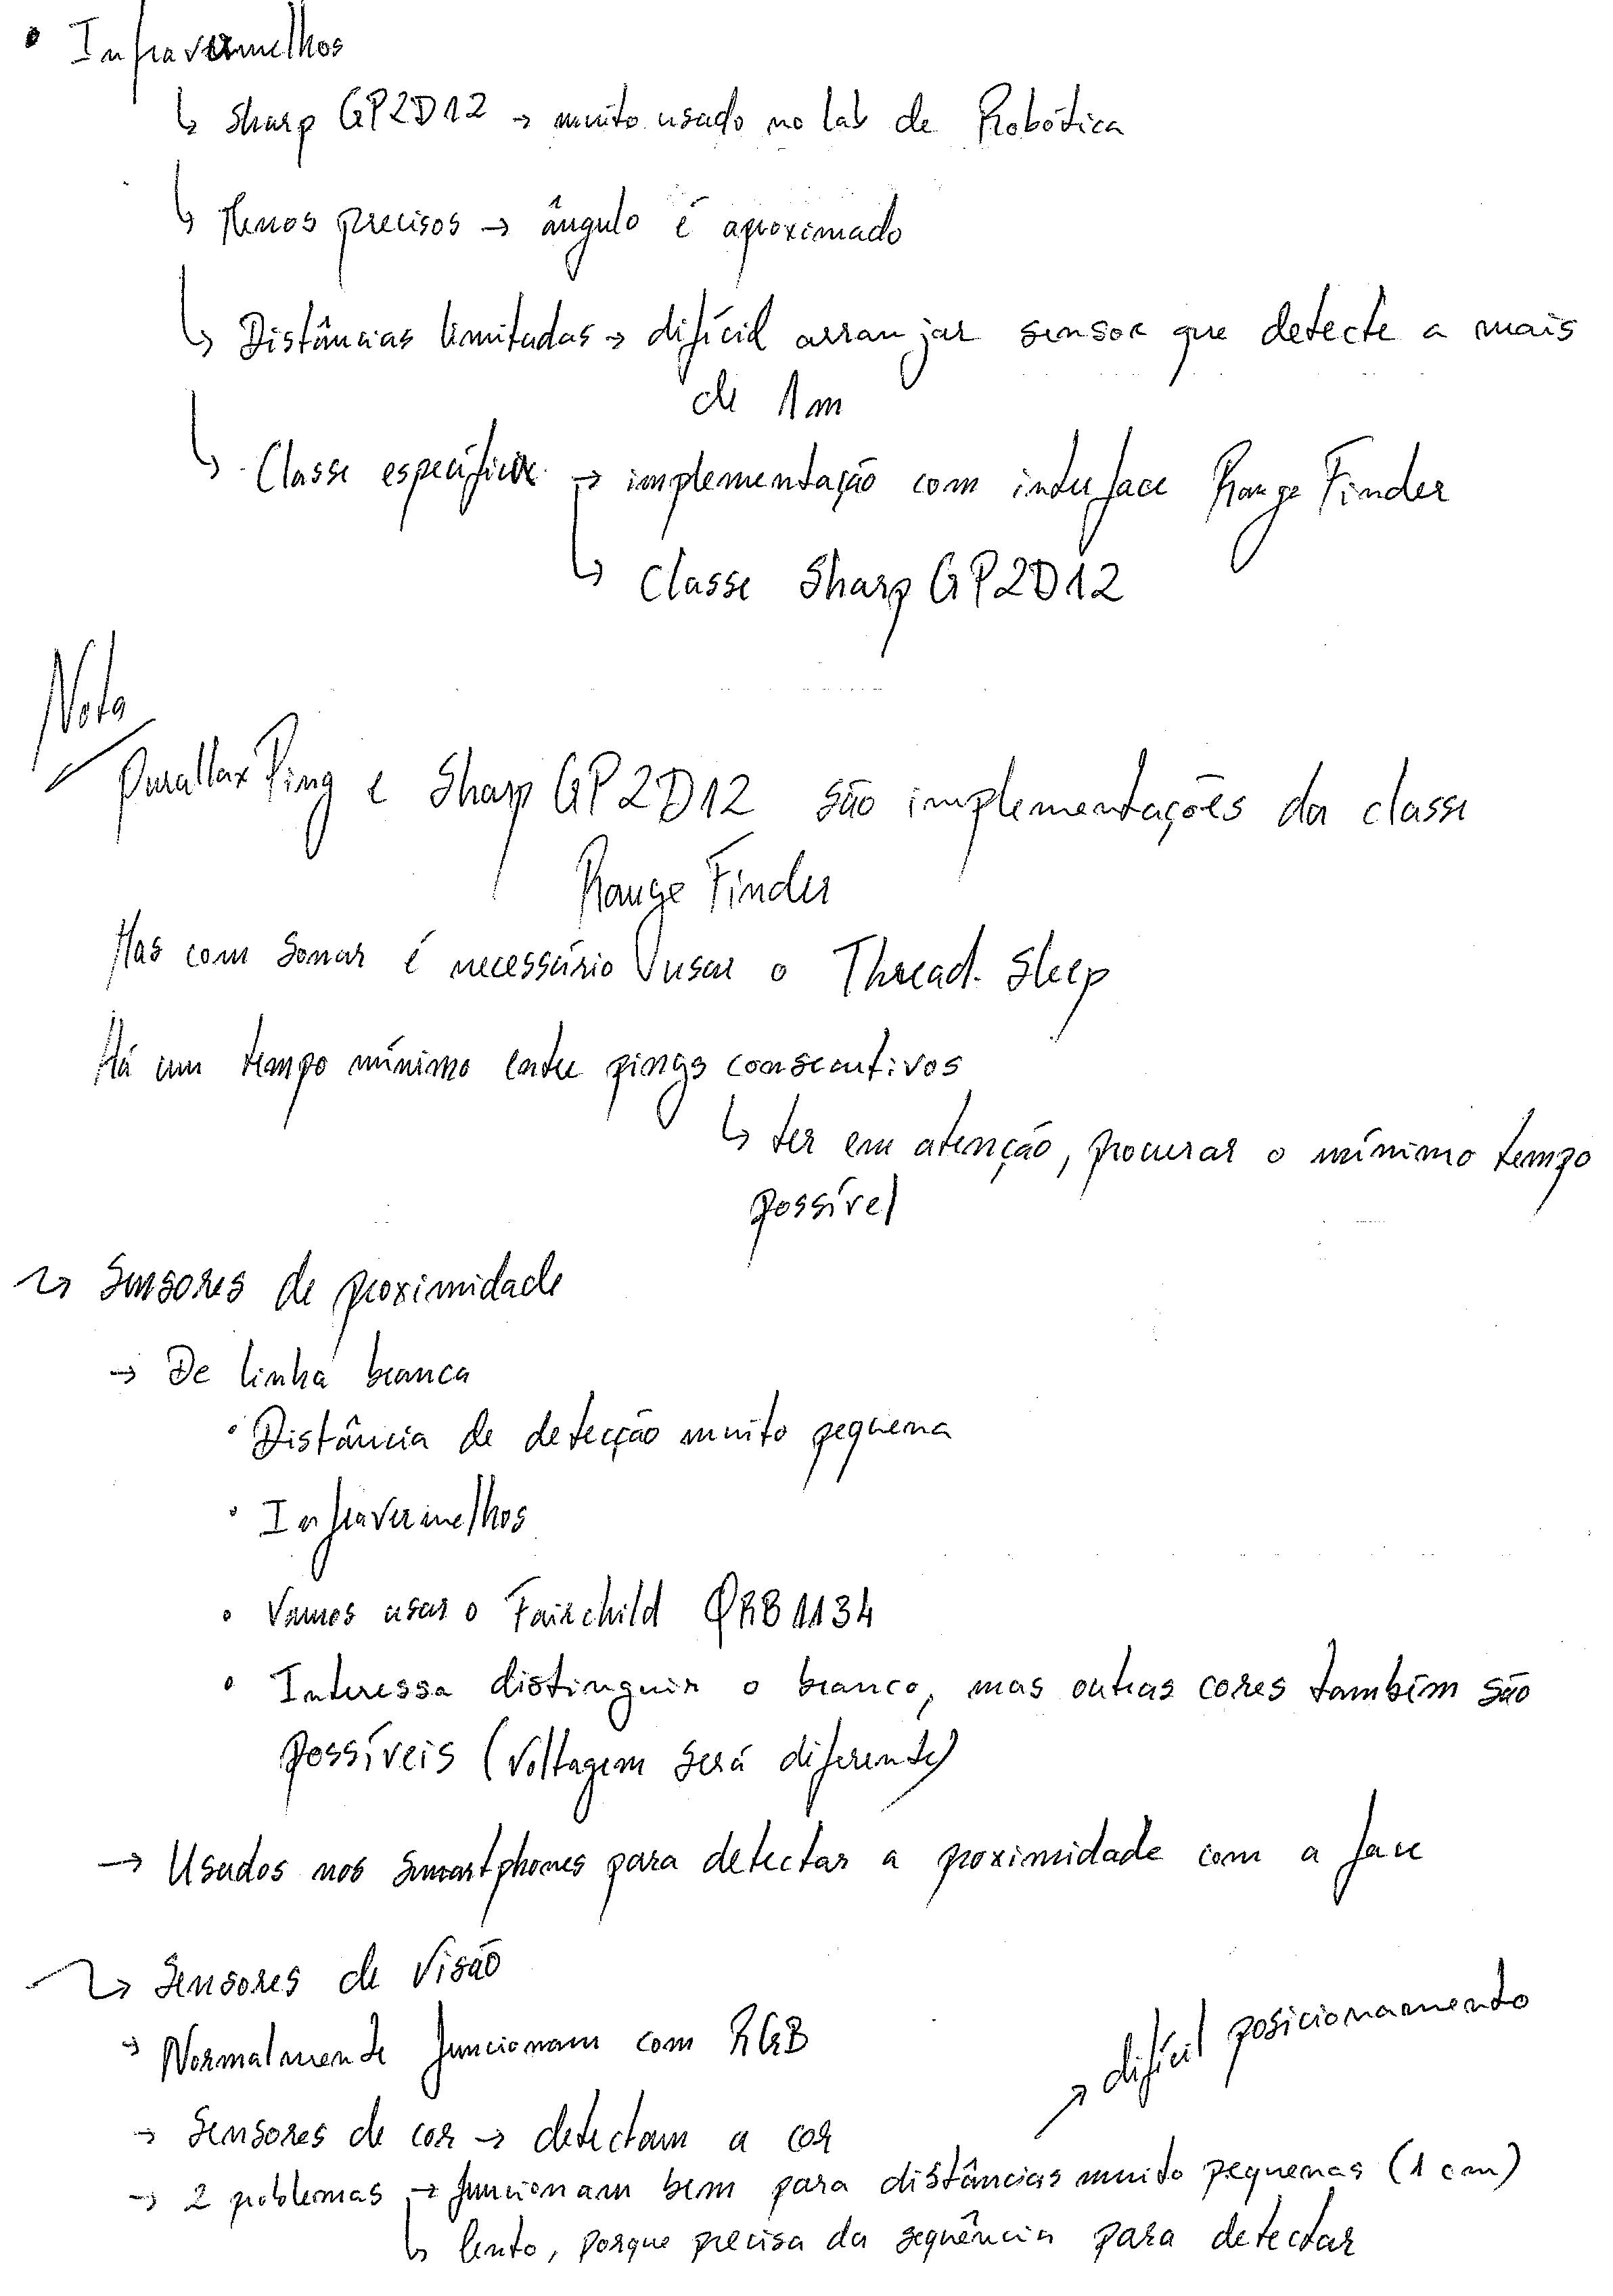 • Infravermelhos
↳ Sharp GP2D12 → muito usado no lab de Robótica
↳ Menos precisos → ângulo é aproximado
↳ Distâncias limitadas → difícil arranjar sensor que detecte a mais
de 1m
↳ Classe específica → implementação com interface Range Finder
↳ Classe Sharp GP2D12
Nota
Parallax Ping e Sharp GP2D12 são implementações da classe
Range Finder
Mas com Sonar é necessário usar o Thread.Sleep
Há um tempo mínimo entre pings consecutivos
↳ ter em atenção, procurar o mínimo tempo
possível
↳ Sensores de proximidade
→ De linha branca
• Distância de detecção muito pequena
• Infravermelhos
• Vamos usar o Fairchild QRB1134
• Interessa distinguir o branco, mas outras cores também são
possíveis (Voltagem será diferente)
→ Usados nos smartphones para detectar a proximidade com a face
↳ Sensores de Visão
→ Normalmente funcionam com RGB
→ Sensores de cor → detectam a cor
↗ difícil posicionamento
→ 2 problemas → funcionam bem para distâncias muito pequenas (1 cm)
↳ lento, porque precisa da sequência para detectar